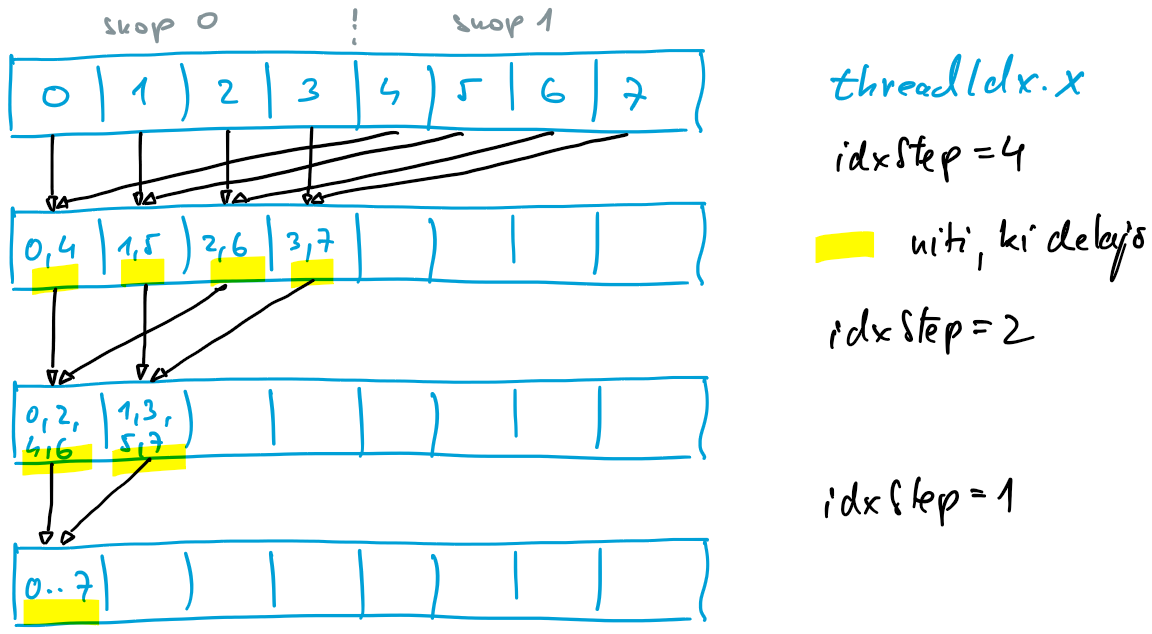 snop 0 ! snop 1
0 1 2 3 4 5 6 7
threadIdx.x
idxStep = 4
0,4 1,5 2,6 3,7
niti, ki delajo
idxStep = 2
0,2, 1,3,
4,6 5,7
idxStep = 1
0..7